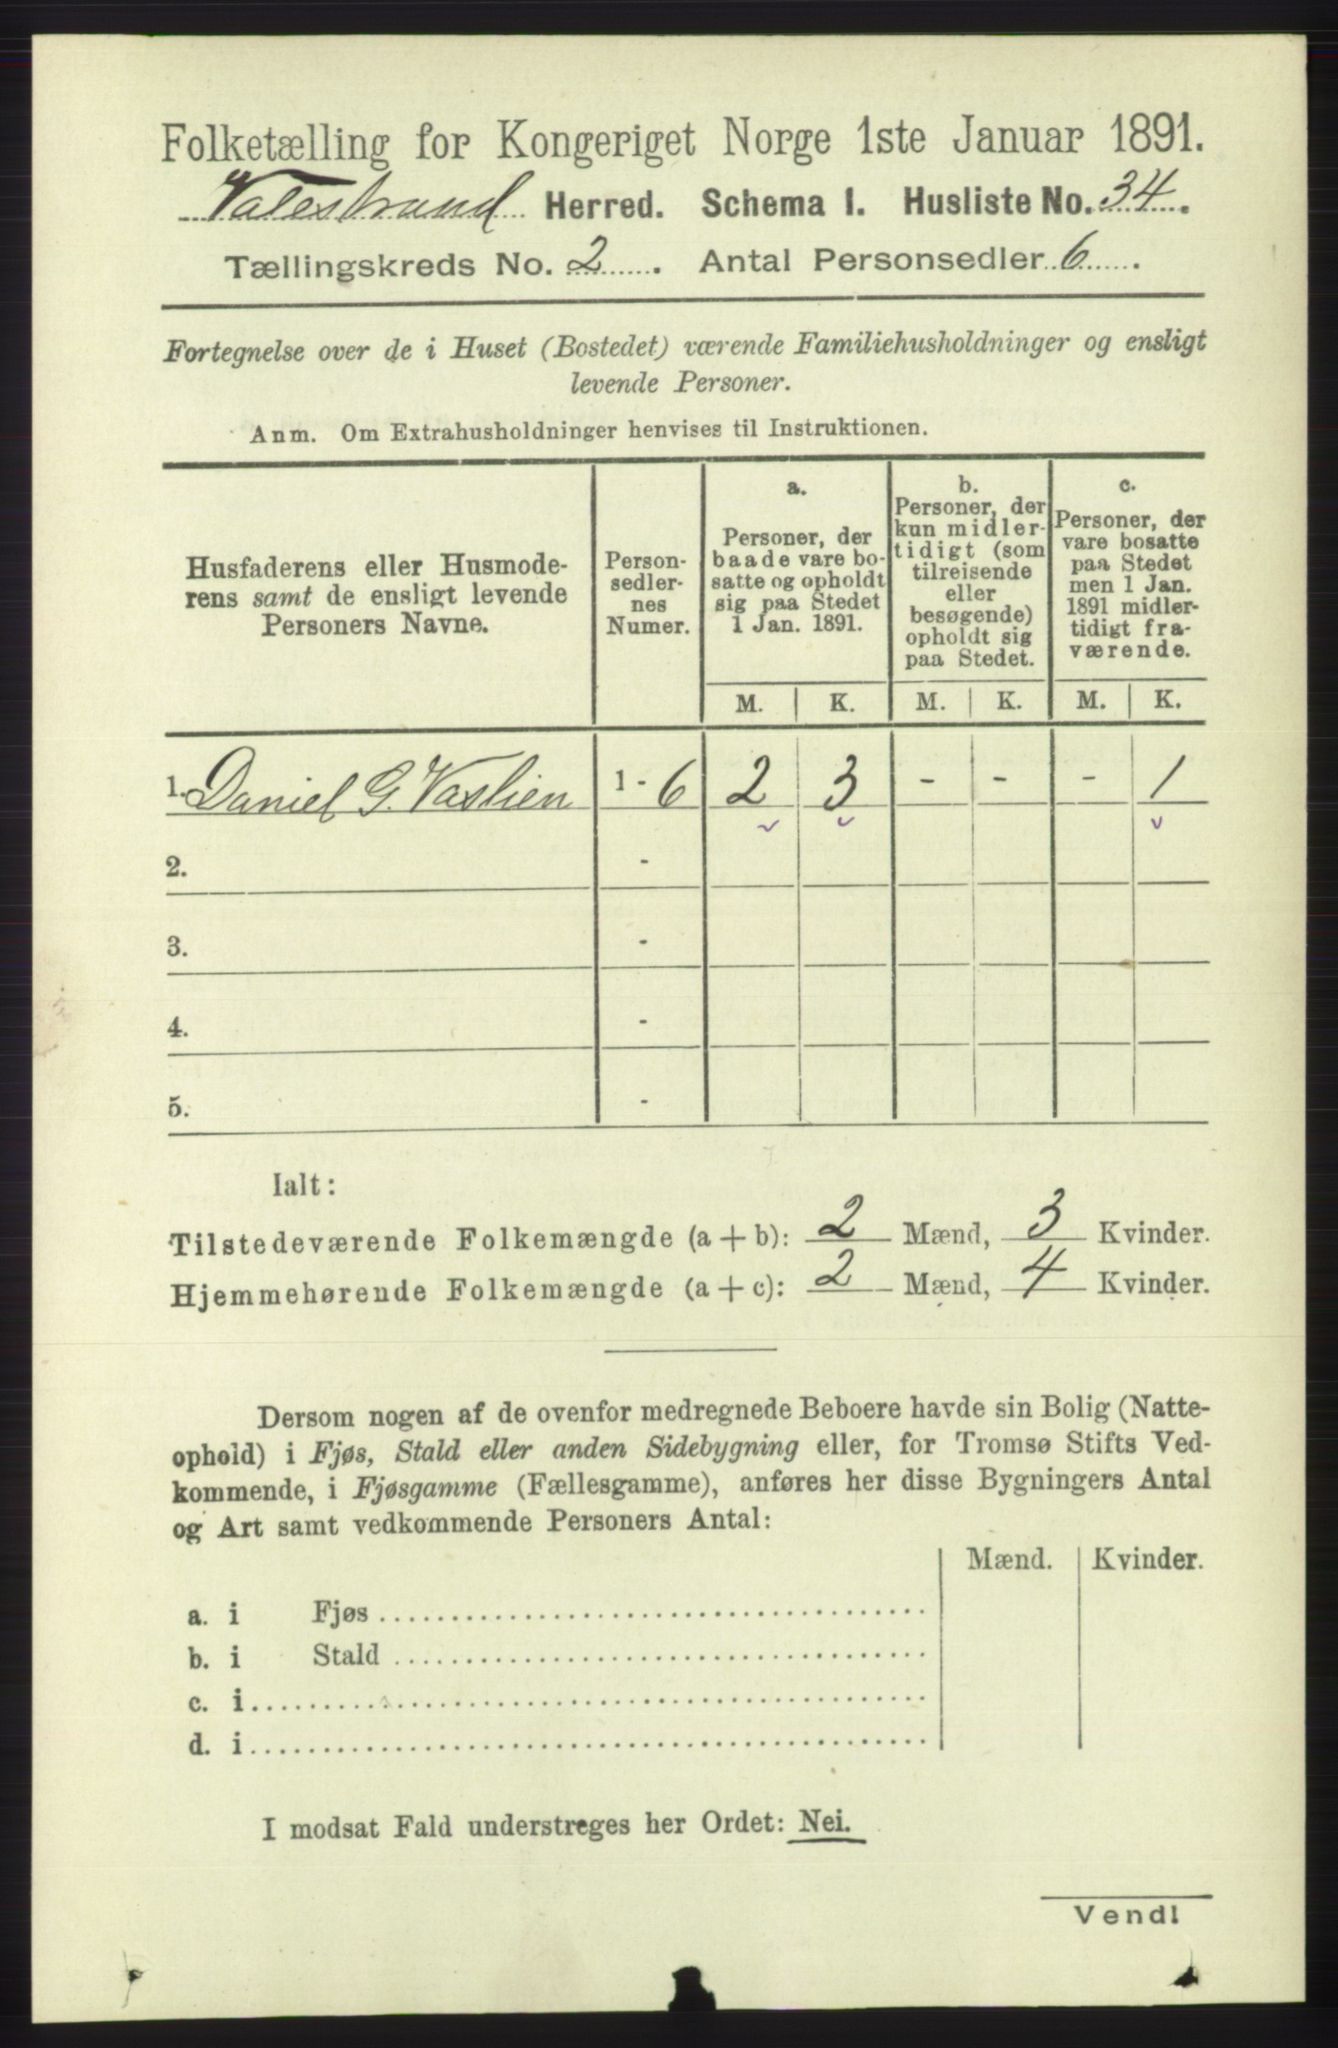 Folketælling for Kongeriget Norge 1ste Januar 1891.
Valestrand Herred. Schema I. Husliste No. 34.
Tællingskreds No. 2. Antal Personsedler 6.
Fortegnelse over de i Huset (Bostedet) værende Familiehusholdninger og ensligt
levende Personer.
Anm. Om Extrahusholdninger henvises til Instruktionen.
Husfaderens eller Husmode-
rens samt de ensligt levende
Personers Navne.
Person-
sedler-
nes
Numer.
a.
Personer, der
baade vare bo-
satte og opholdt
sig paa Stedet
1 Jan. 1891.
b.
Personer, der
kun midler-
tidigt (som
tilreisende
eller
besøgende)
opholdt sig
paa Stedet.
c.
Personer, der
vare bosatte
paa Stedet
men 1 Jan.
1891 midler-
tidigt fra-
værende.
M. K. M. K. M. K.
1. Daniel G. Vaslien 1 - 6 2 3 - - - 1
2. -
3. -
4. -
5. -
Ialt:
Tilstedeværende Folkemængde (a + b): 2 Mænd, 3 Kvinder.
Hjemmehørende Folkemængde (a + c): 2 Mænd, 4 Kvinder.
Dersom nogen af de ovenfor medregnede Beboere havde sin Bolig (Natte-
ophold) i Fjøs, Stald eller anden Sidebygning eller, for Tromsø Stifts Ved-
kommende, i Fjøsgamme (Fællesgamme), anføres her disse Bygningers Antal
og Art samt vedkommende Personers Antal:
Mænd. Kvinder.
a. i Fjøs
b. i Stald
c. i
d. i
I modsat Fald understreges her Ordet: Nei.
Vend!